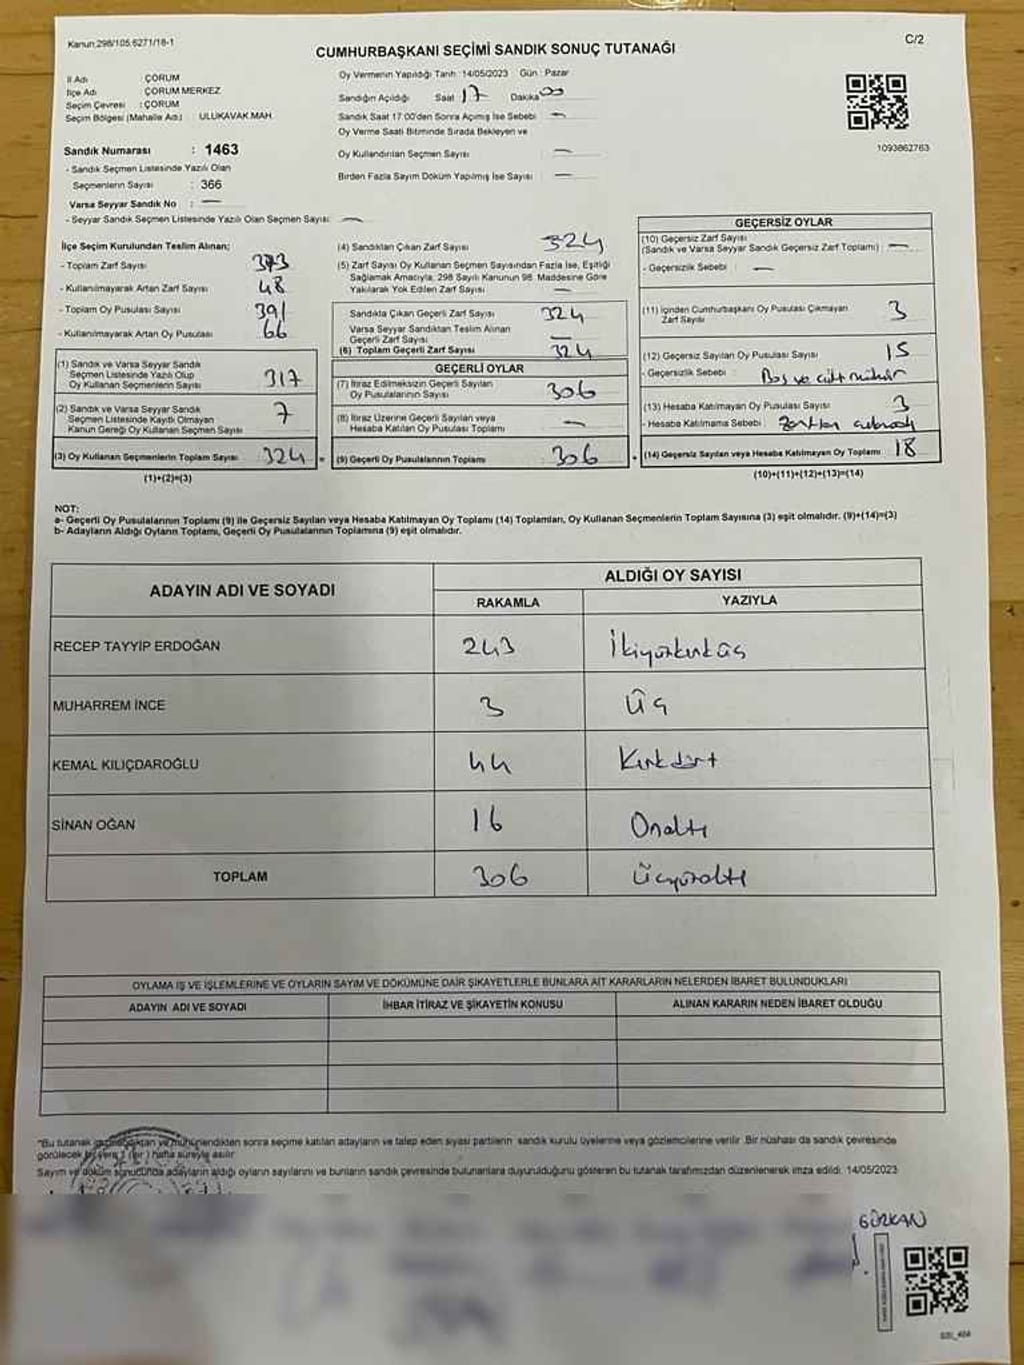 Kanun:298/105.6271/18-1
C/2
CUMHURBAŞKANI SEÇİMİ SANDIK SONUÇ TUTANAĞI
İl Adı : ÇORUM
İlçe Adı : ÇORUM MERKEZ
Seçim Çevresi : ÇORUM
Seçim Bölgesi (Mahalle Adı) : ULUKAVAK MAH.
Sandık Numarası : 1463
- Sandık Seçmen Listesinde Yazılı Olan
Seçmenlerin Sayısı : 366
Varsa Seyyar Sandık No : —
- Seyyar Sandık Seçmen Listesinde Yazılı Olan Seçmen Sayısı : —
Oy Vermenin Yapıldığı Tarih : 14/05/2023 Gün : Pazar
Sandığın Açıldığı Saat 17 Dakika 00
Sandık Saat 17:00'den Sonra Açımış İse Sebebi : —
Oy Verme Saati Bitiminde Sırada Bekleyen ve
Oy Kullandırılan Seçmen Sayısı : —
Birden Fazla Sayım Döküm Yapılmış İse Sayısı : —
1093862763
İlçe Seçim Kurulundan Teslim Alınan;
- Toplam Zarf Sayısı 373
- Kullanılmayarak Artan Zarf Sayısı 48
- Toplam Oy Pusulası Sayısı 391
- Kullanılmayarak Artan Oy Pusulası 66
(1) Sandık ve Varsa Seyyar Sandık
Seçmen Listesinde Yazılı Olup
Oy Kullanan Seçmenlerin Sayısı 317
(2) Sandık ve Varsa Seyyar Sandık
Seçmen Listesinde Kayıtlı Olmayan
Kanun Gereği Oy Kullanan Seçmen Sayısı 7
(3) Oy Kullanan Seçmenlerin Toplam Sayısı 324 =
(1)+(2)=(3)
(4) Sandıktan Çıkan Zarf Sayısı 324
(5) Zarf Sayısı Oy Kullanan Seçmen Sayısından Fazla İse, Eşitliği
Sağlamak Amacıyla, 298 Sayılı Kanunun 98. Maddesine Göre
Yakılarak Yok Edilen Zarf Sayısı —
Sandıkta Çıkan Geçerli Zarf Sayısı 324
Varsa Seyyar Sandıktan Teslim Alınan
Geçerli Zarf Sayısı —
(6) Toplam Geçerli Zarf Sayısı 324
GEÇERLİ OYLAR
(7) İtiraz Edilmeksizin Geçerli Sayılan
Oy Pusulalarının Sayısı 306
(8) İtiraz Üzerine Geçerli Sayılan veya
Hesaba Katılan Oy Pusulası Toplamı —
(9) Geçerli Oy Pusulalarının Toplamı 306 +
GEÇERSİZ OYLAR
(10) Geçersiz Zarf Sayısı
(Sandık ve Varsa Seyyar Sandık Geçersiz Zarf Toplamı) —
- Geçersizlik Sebebi : —
(11) İçinden Cumhurbaşkanı Oy Pusulası Çıkmayan
Zarf Sayısı 3
(12) Geçersiz Sayılan Oy Pusulası Sayısı 15
- Geçersizlik Sebebi : Boş ve çift mühür
(13) Hesaba Katılmayan Oy Pusulası Sayısı 3
- Hesaba Katılmama Sebebi : Zarftan
(14) Geçersiz Sayılan veya Hesaba Katılmayan Oy Toplamı 18
(10)+(11)+(12)+(13)=(14)
NOT:
a- Geçerli Oy Pusulalarının Toplamı (9) ile Geçersiz Sayılan veya Hesaba Katılmayan Oy Toplamı (14) Toplamları, Oy Kullanan Seçmenlerin Toplam Sayısına (3) eşit olmalıdır. (9)+(14)=(3)
b- Adayların Aldığı Oyların Toplamı, Geçerli Oy Pusulalarının Toplamına (9) eşit olmalıdır.
ADAYIN ADI VE SOYADI
ALDIĞI OY SAYISI
RAKAMLA YAZIYLA
RECEP TAYYİP ERDOĞAN 243 İkiyüzkırküç
MUHARREM İNCE 3 Üç
KEMAL KILIÇDAROĞLU 44 Kırkdört
SİNAN OĞAN 16 Onaltı
TOPLAM 306 Üçyüzaltı
OYLAMA İŞ VE İŞLEMLERİNE VE OYLARIN SAYIM VE DÖKÜMÜNE DAİR ŞİKAYETLERLE BUNLARA AİT KARARLARIN NELERDEN İBARET BULUNDUKLARI
ADAYIN ADI VE SOYADI İHBAR İTİRAZ VE ŞİKAYETİN KONUSU ALINAN KARARIN NEDEN İBARET OLDUĞU
"Bu tutanak imzalandıktan ve mühürlendikten sonra seçime katılan adayların ve talep eden siyasi partilerin sandık kurulu üyelerine veya gözlemcilerine verilir. Bir nüshası da sandık çevresinde
görülecek bir yere 1 (bir) hafta süreyle asılır.
Sayım ve döküm sonucunda adayların aldığı oyların sayılarını ve bunların sandık çevresinde bulunanlara duyurulduğunu gösteren bu tutanak tarafımızdan düzenlenerek imza edildi. 14/05/2023
GÜRKAN